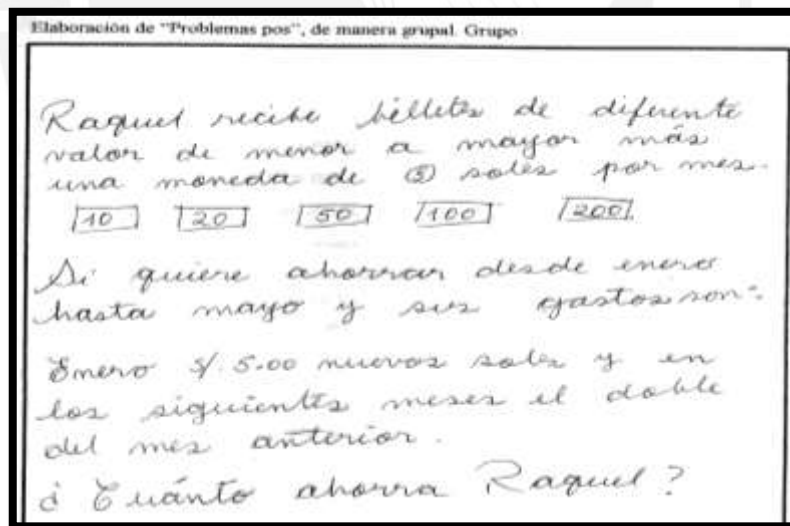 Elaboración de "Problemas pos", de manera grupal. Grupo
Raquel recibe billetes de diferente
valor de menor a mayor más
una moneda de 5 soles por mes.
10 20 50 100 200
Si quiere ahorrar desde enero
hasta mayo y sus gastos son:
Enero S/. 5.00 nuevos soles y en
los siguientes meses el doble
del mes anterior.
¿Cuánto ahorra Raquel?